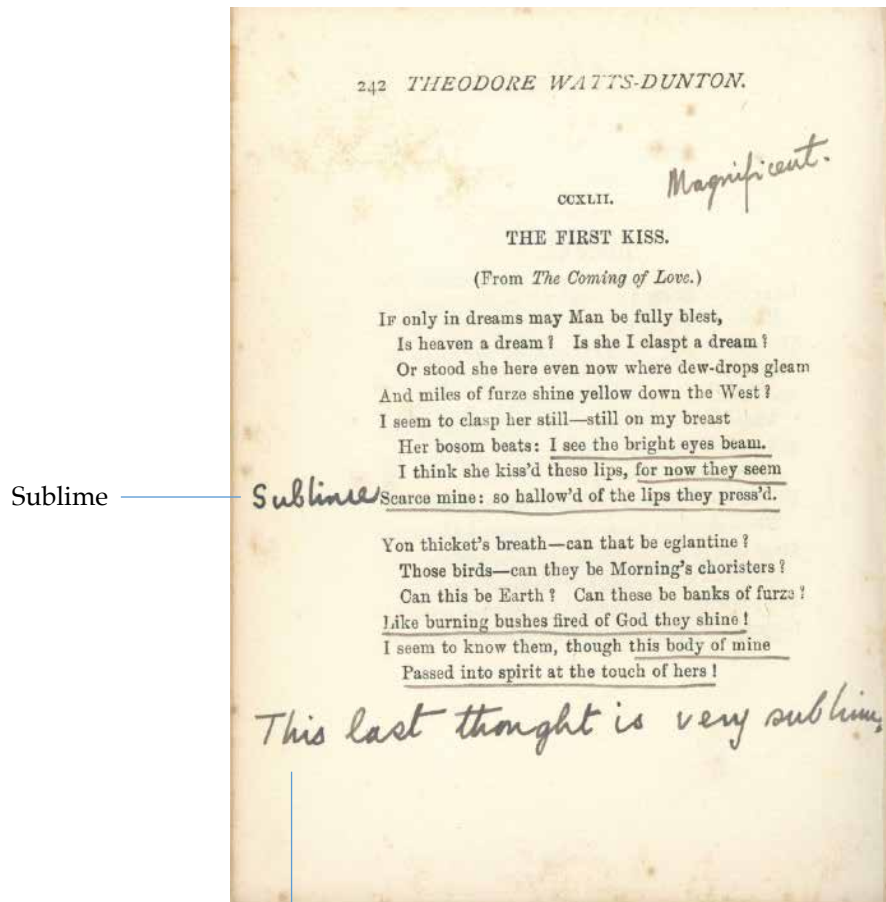 242 THEODORE WATTS-DUNTON.
Magnificent.
CCXLII.
THE FIRST KISS.
(From The Coming of Love.)
IF only in dreams may Man be fully blest,
Is heaven a dream? Is she I claspt a dream?
Or stood she here even now where dew-drops gleam
And miles of furze shine yellow down the West?
I seem to clasp her still—still on my breast
Her bosom beats: I see the bright eyes beam.
I think she kiss'd these lips, for now they seem
Sublime Sublime Scarce mine: so hallow'd of the lips they press'd.
Yon thicket's breath—can that be eglantine?
Those birds—can they be Morning's choristers?
Can this be Earth? Can these be banks of furze?
Like burning bushes fired of God they shine!
I seem to know them, though this body of mine
Passed into spirit at the touch of hers!
This last thought is very sublime